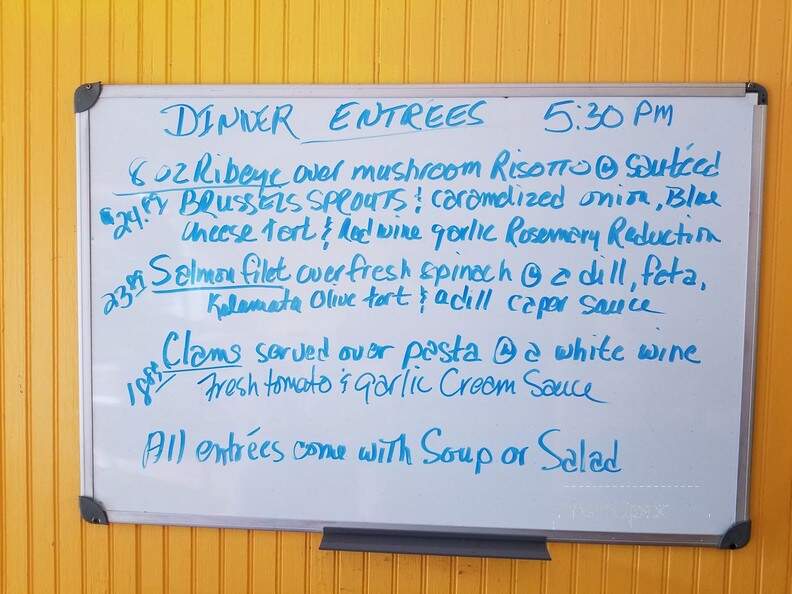 DINNER ENTRÉES 5:30 PM
8 oz Ribeye over mushroom Risotto w sautéed
$24.89 BRUSSELS SPROUTS & caramelized onion, Blue
cheese tart & Red wine garlic Rosemary Reduction
23.89 Salmon filet over fresh spinach w a dill, feta,
Kalamata Olive tart & a dill caper sauce
18.89 Clams served over pasta w a white wine
Fresh tomato & garlic Cream Sauce
All entrées come with Soup or Salad